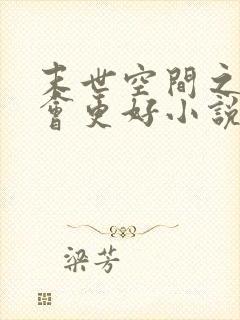 末世空間之
會更好小説
梁芳